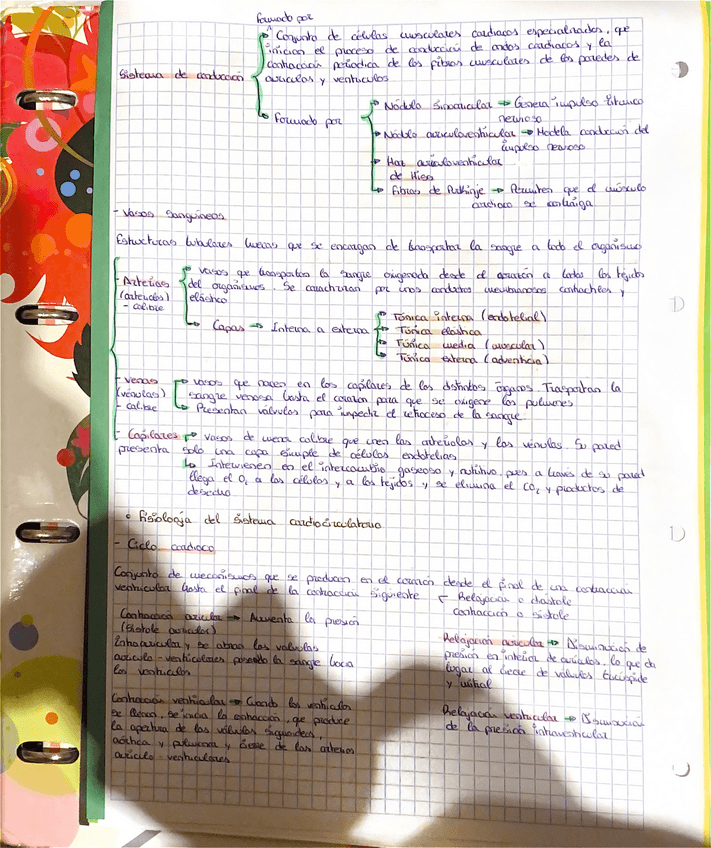 formado por
Conjunto de células musculares cardiacas especializadas, que
inician el proceso de conducción de ondas cardiacas y la
contracción periodica de las fibras musculares de las paredes de
Sistema de conducción
auriculas y ventriculos
Formado por
Nódulo sinoauricular → Genera impulso
nervioso
Nódulo auriculoventricular → Modela conducción del
impulso nervioso
Haz auriculoventricular
de Hiss
Fibras de Purkinje → Permiten que el músculo
cardiaco se contraiga
- Vasos sanguineos
Estructuras tubulares huecas que se encargan de transportar la sangre a todo el organismo
- Arterias
(arteriolas)
- calibre
vasos que transportan la sangre oxigenada desde el corazón a todos los tejidos
del organismo. Se caracterizan por unos conductos membranosos contractiles y
elástico
Capas → Interna a externa
Túnica interna (endotelial)
Túnica elastica
Túnica media (muscular)
Túnica externa (adventicia)
- venas
(vénulas)
- calibre
vasos que nacen en los capilares de los distintos órganos. Trasportan la
sangre venosa hasta el corazón para que se oxigene los pulmones
Presentan válvulas para impedir el retroceso de la sangre
- Capilares → vasos de menor calibre que unen las arteriolas y las vénulas. Su pared
presenta solo una capa simple de células endotelias
Intervienen en el intercambio gaseoso y nutritivo, pues a través de su pared
llega el O₂ a las células y a los tejidos y se elimina el CO₂ y productos de
desecho
• Fisiología del sistema cardiocirculatorio
- Ciclo cardiaco
Conjunto de mecanismos que se producen en el corazón desde el final de una contracción
ventricular hasta el final de la contracción siguiente
Relajación o diástole
contracción o sístole
Contracción auricular → Aumenta la presión
(sístole auricular)
intraauricular y se abren las valvulas
auriculo-ventriculares pasando la sangre hacia
los ventriculos
Relajación auricular → Disminución de
presión en interior de auriculas, lo que da
lugar al cierre de válvulas tricúspide
y mitral
Contracción ventricular → Cuando los ventriculos
se llenan, se inicia la contraccion, que produce
la apertura de las válvulas sigmoideas,
aórtica y pulmonar y cierre de las arterias
auriculo-ventriculares
Relajación ventricular → Disminución
de la presión intraventricular